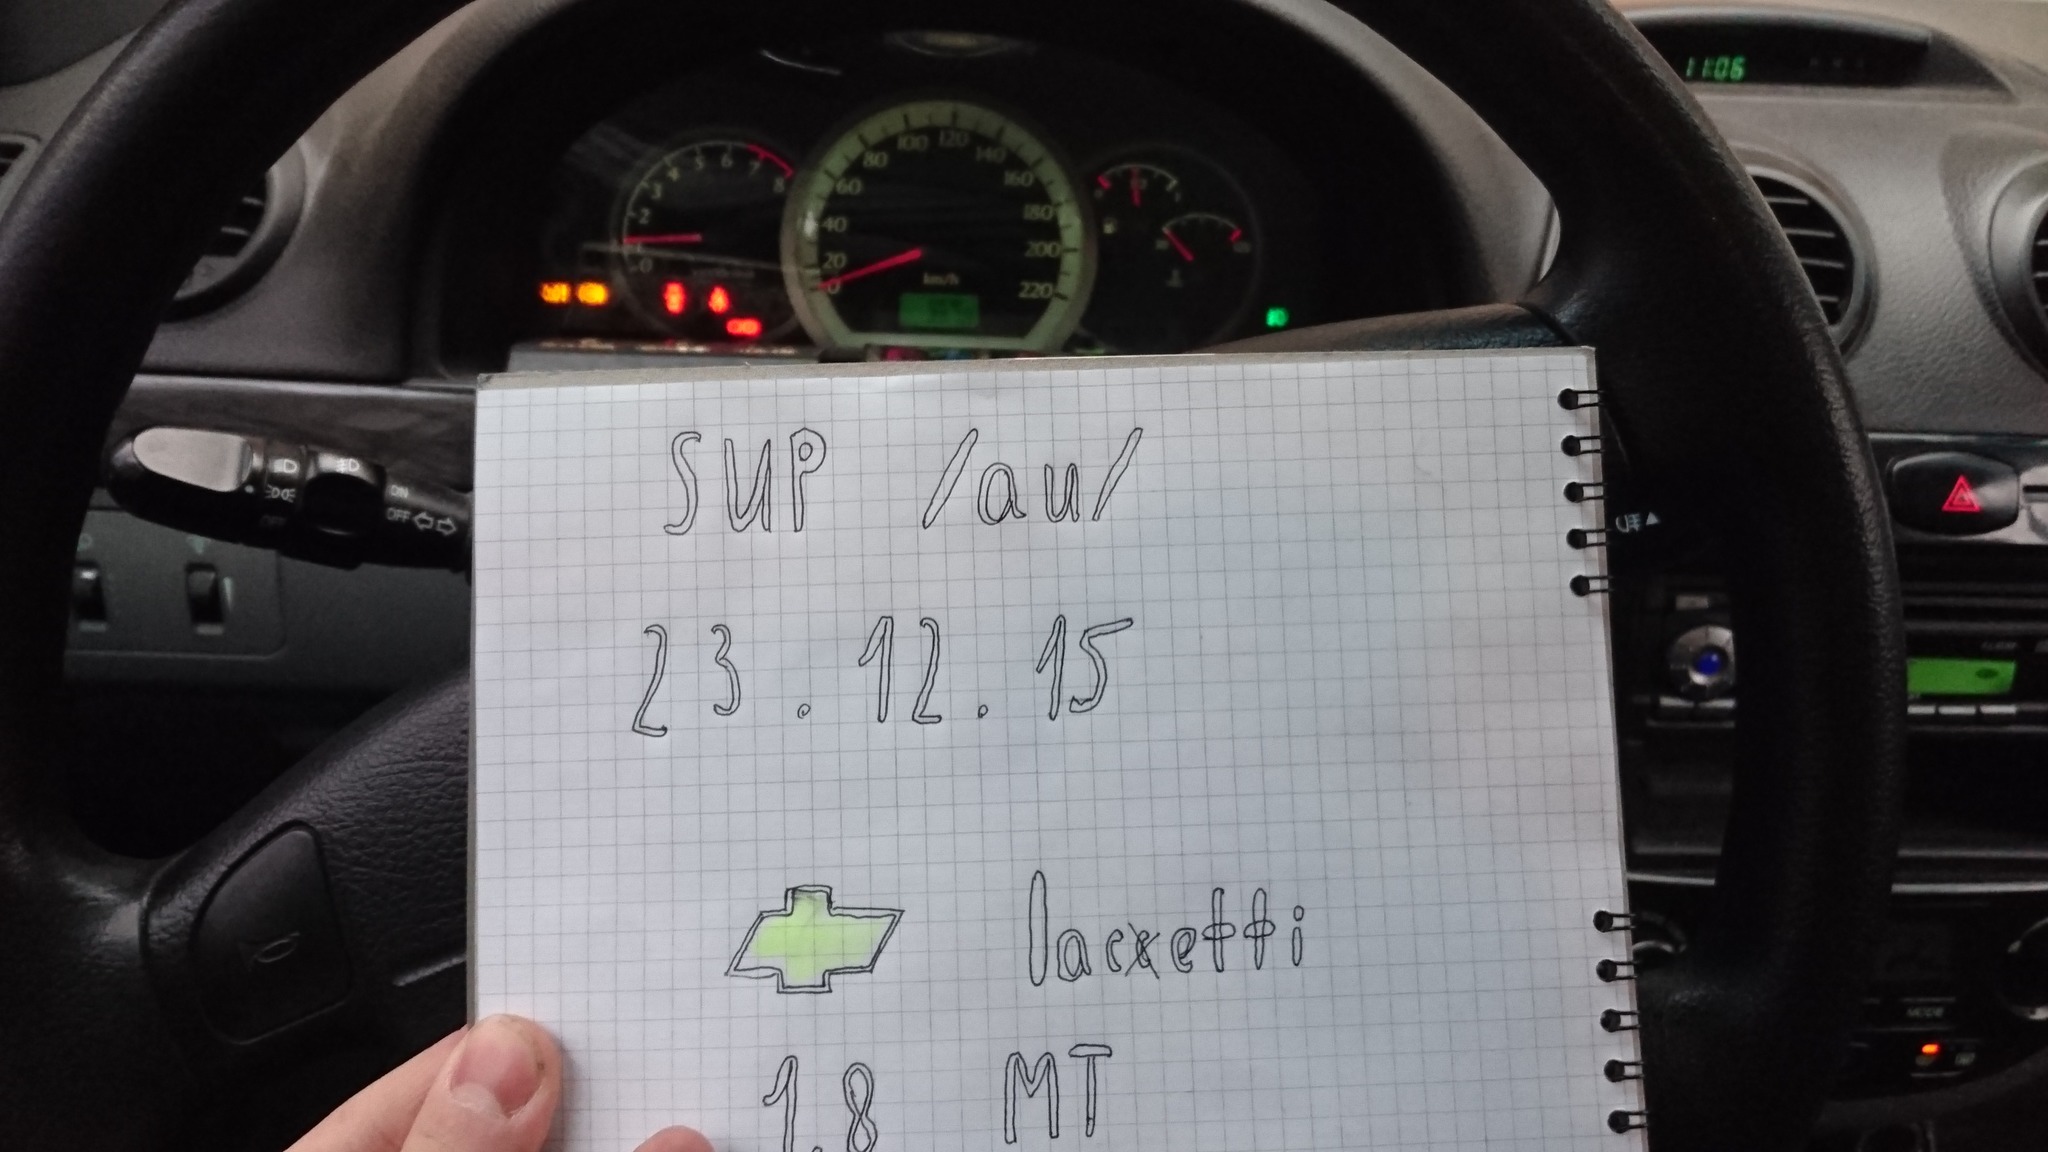 11:06
1 2 3 4 5 6 7 8
0
0 20 40 60 80 100 120 140 160 180 200 220
km/h
ON
OFF
OFF
SUP /au/
23.12.15
lacxetti
1.8 MT
MODE